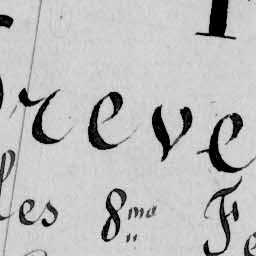 reve
les 8ma Fe